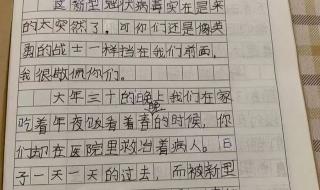 这新型冠状病毒实在是来
的太突然了。可你们还是像英
勇的战士一样挡在我们前面,
我很敬佩你们。
大年三十的晚上我们在家
吃着年夜饭看着春晚的时候,你
们却在医院里救治着病人。日
子一天一天的过去,而被新型